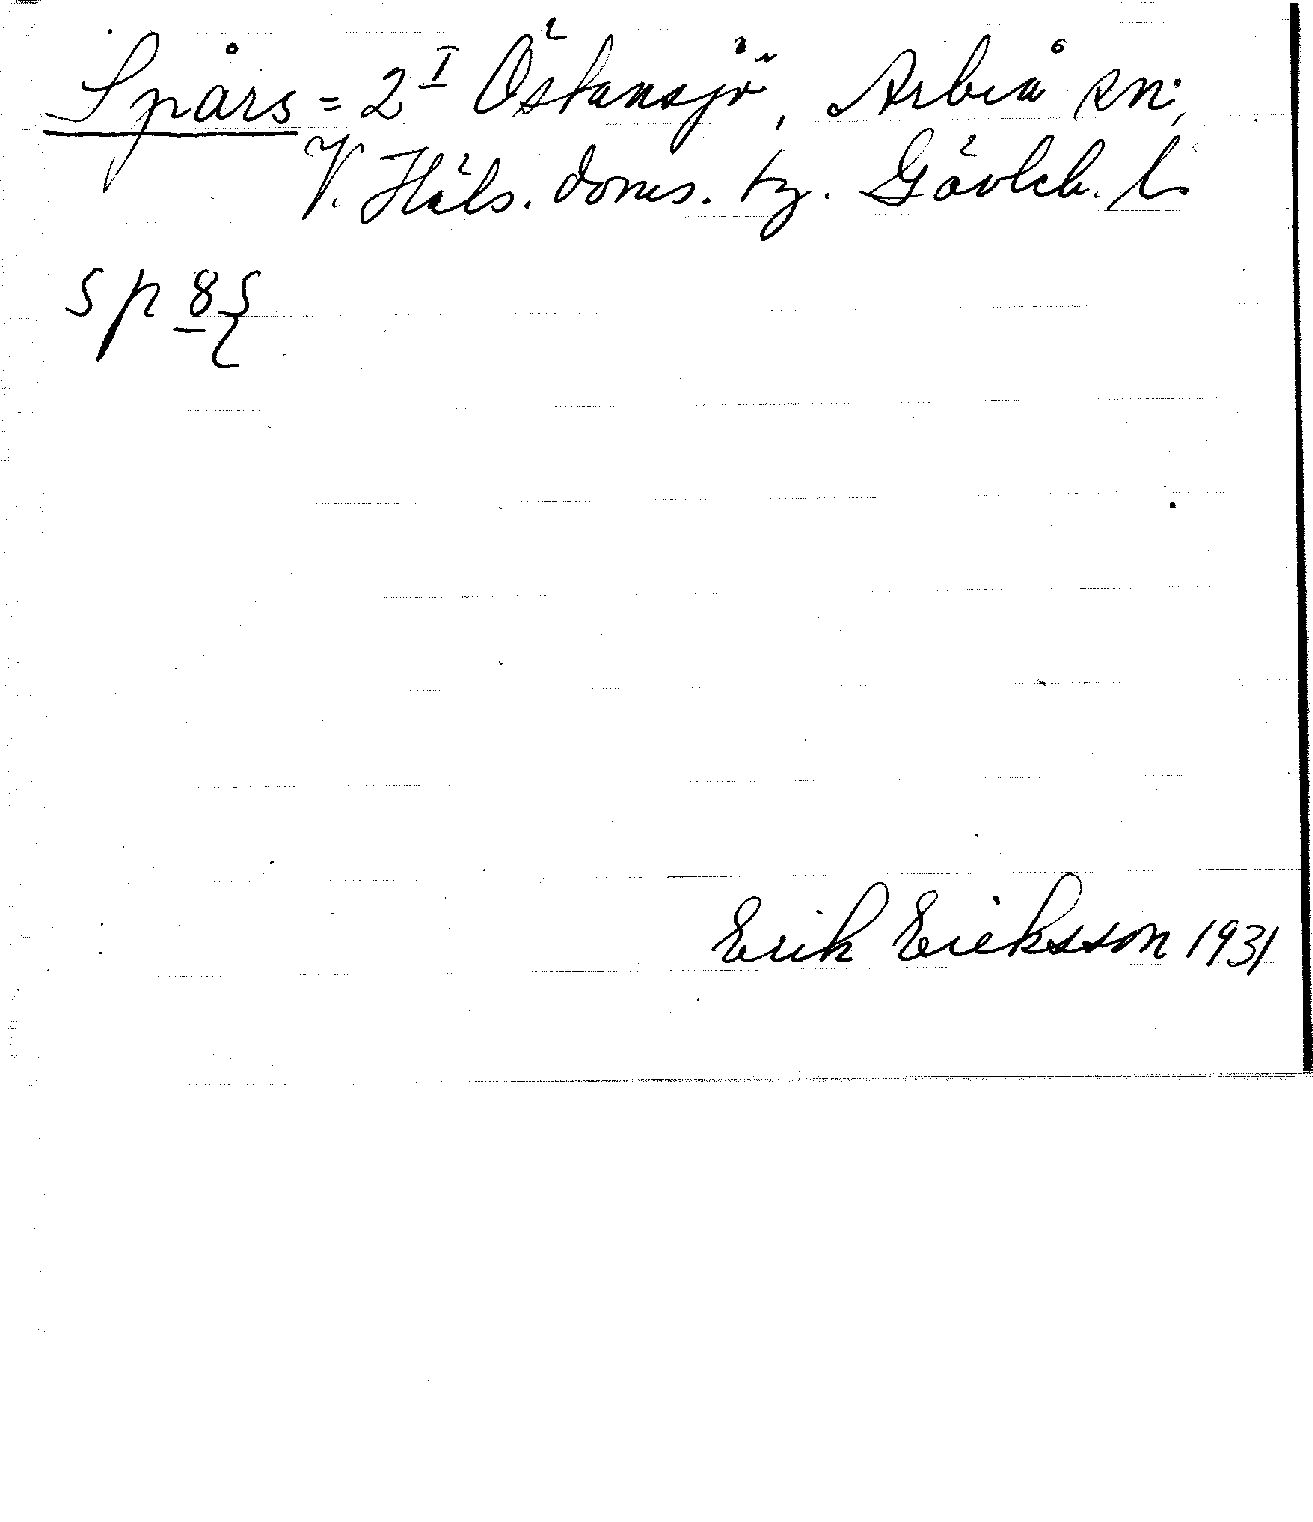 Spårs = 2 I Östansjö, Arbrå sn;
V. Häls. doms. tg. Gävleb. l.
sp
Erik Eriksson 1931